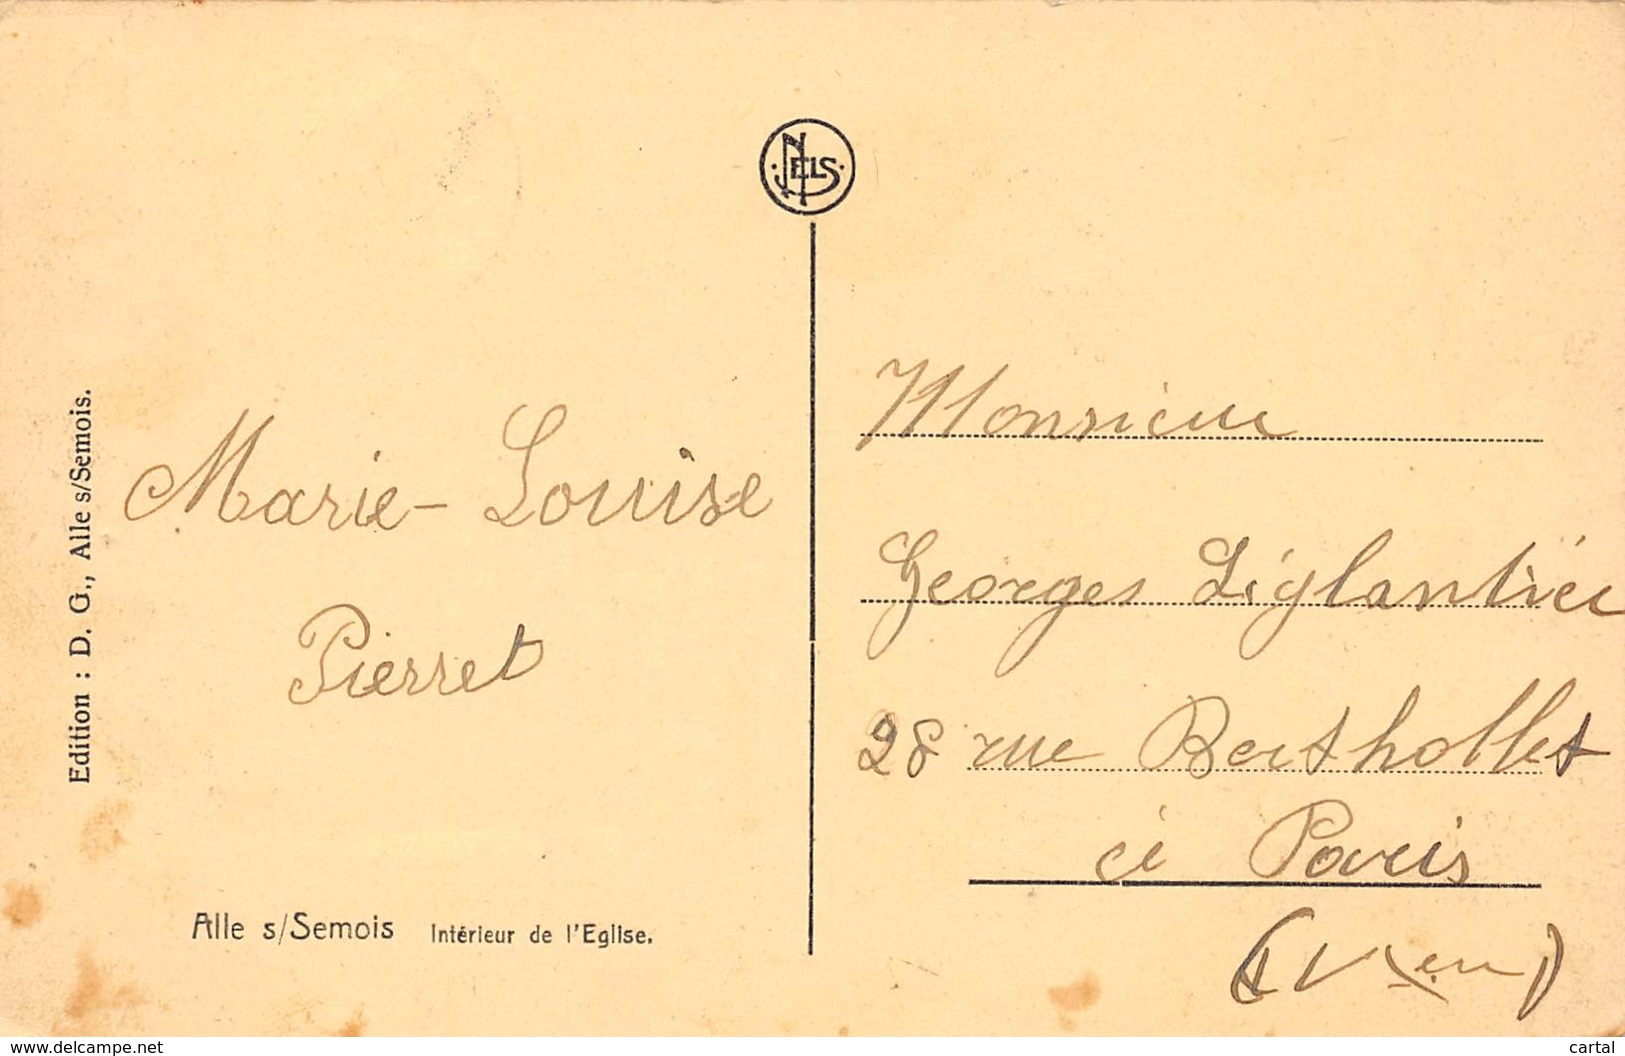 NELS
Edition : D. G., Alle s/Semois.
Marie-Louise
Pierret
Alle s/Semois Intérieur de l'Eglise.
Monsieur
Georges Liglantier
28 rue Berthollet
à Paris
www.delcampe.net
cartal